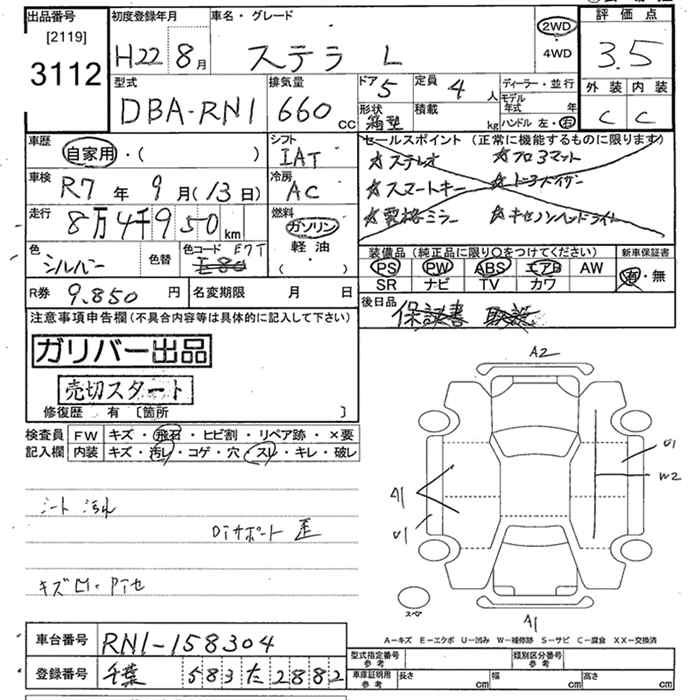 出品番号 初度登録年月 車名・グレード 評価点
[2119]
3112 H22 8月 ステラ L 2WD・4WD 3.5
型式 排気量 ドア 5 定員 4人 ディーラー・並行 外装 内装
DBA-RN1 660cc 形状 箱型 積載 kg モデル年式 年 C C
ハンドル 左・右
車歴 シフト セールスポイント (正常に機能するものに限ります)
自家用・( ) IAT ☆ステレオ
車検 冷房 ☆スマートキー
R7年9月(13日) AC
走行 燃料 ☆電格ミラー ☆キセノンヘッドライト
8万4千950km ガソリン
軽油
・( )
色 シルバー 色替 色コード E7T
装備品 (純正品に限り○をつけてください) 新車保証書
PS PW ABS エアB AW 有・無
SR ナビ TV カワ
R券 9.850円 名変期限 月 日
後日品 保証書 取説
注意事項申告欄 (不具合内容等は具体的に記入して下さい)
ガリバー出品
売切スタート
修復歴 有 [箇所 ]
検査員 FW キズ・飛石・ヒビ割・リペア跡・×要
記入欄 内装 キズ・汚レ・コゲ・穴・スレ・キレ・破レ
A2
U1
W2
A1
U1
シート 汚れ
Diサポート 歪
スペア
A1
A-キズ E-エクボ U-凹み W-補修跡 S-サビ C-腐食 XX-交換済
車台番号 RN1-158304
登録番号 千葉 583た2882
型式指定番号 参考 類別区分番号 参考
車庫証明用 参考 長さ cm 幅 cm 高さ cm